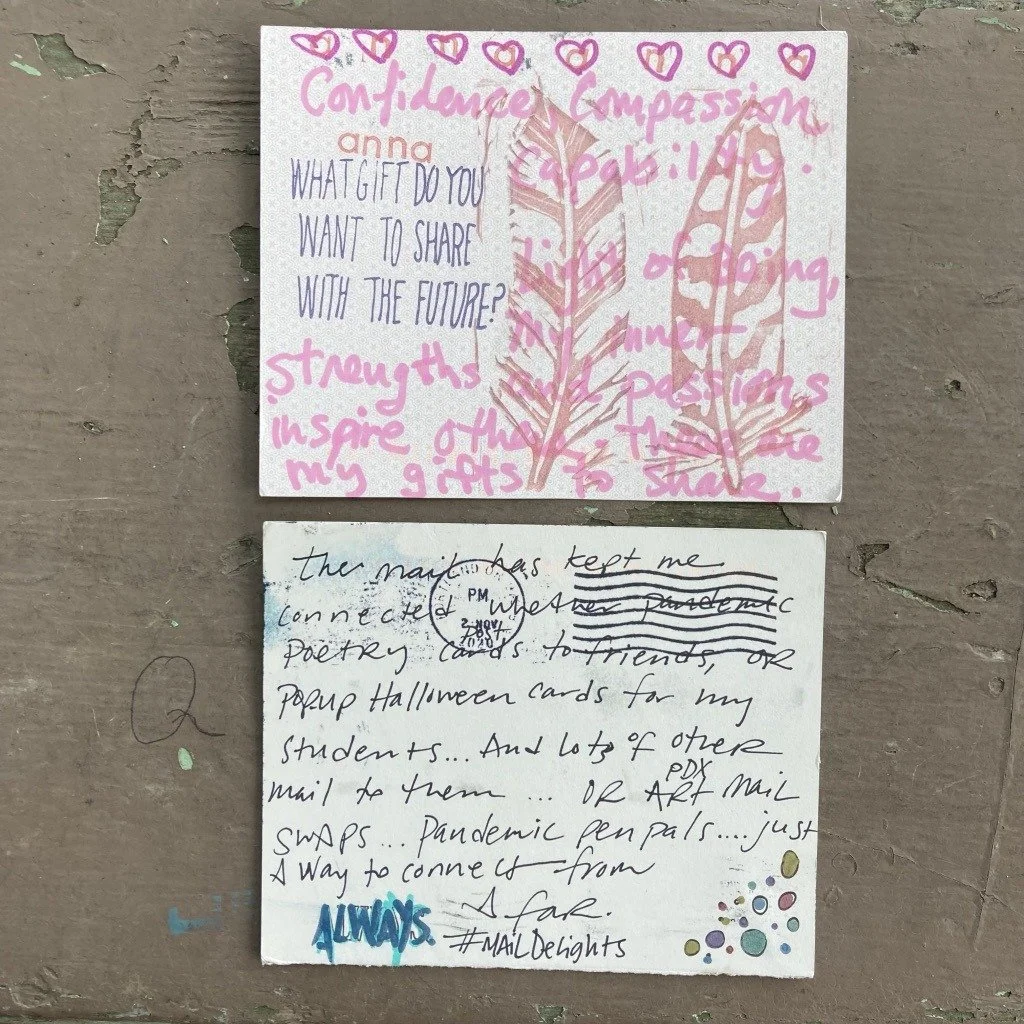 Confidence, Compassion,
Capability.
anna
WHAT GIFT DO YOU
WANT TO SHARE
WITH THE FUTURE?
Light of Being,
My inner
strengths and passions
inspire others. These are
my gifts to share.
the mail has kept me
connected whether pandemic
Poetry cards to friends, OR
Popup Halloween cards for my
students... And lots of other
mail to them ... OR PDX ART Mail
swaps... Pandemic pen pals.... just
A way to connect from
A far.
ALWAYS.
#MAilDelights
PM
APR